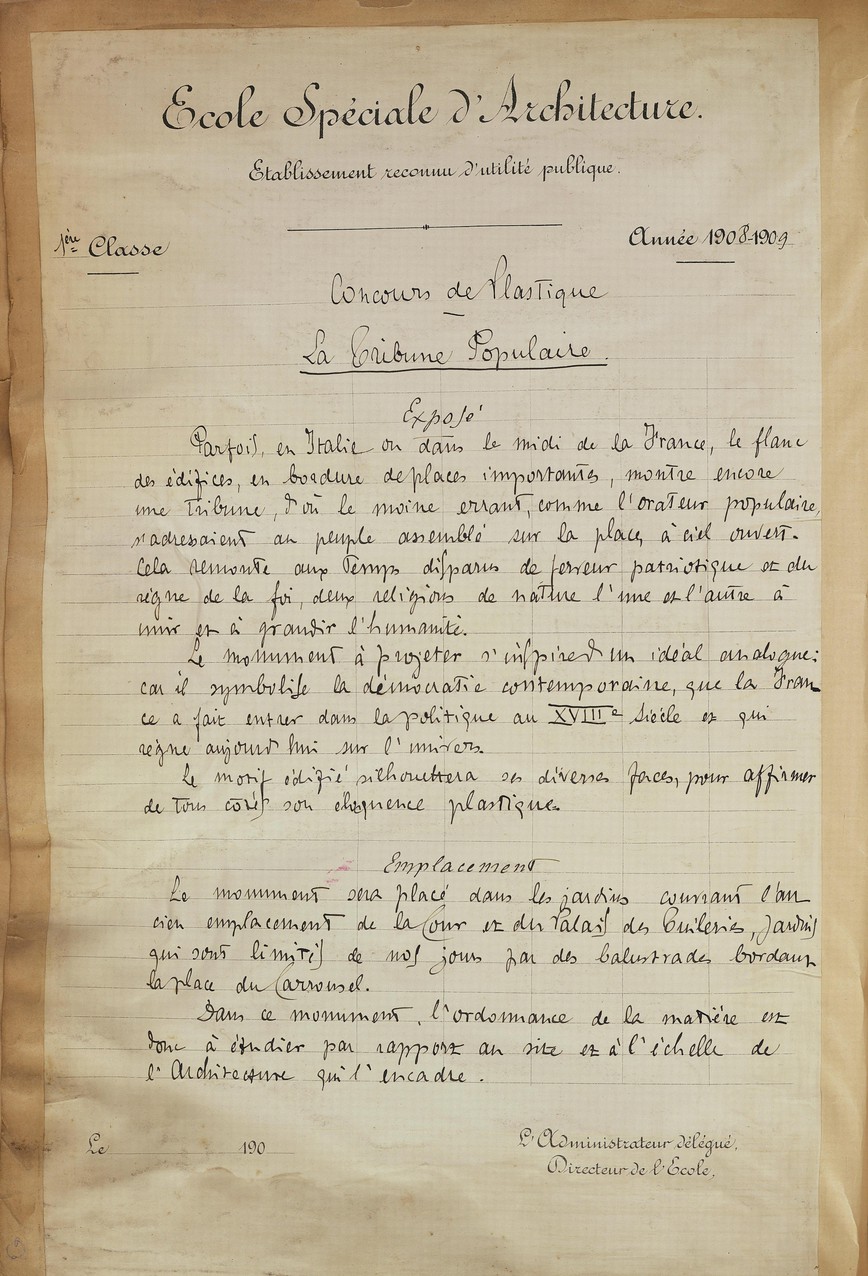 Ecole Spéciale d'Architecture.
Etablissement reconnu d'utilité publique.
1ère Classe
Année 1908-1909
Concours de Plastique
La Tribune Populaire.
Exposé
Parfois, en Italie ou dans le midi de la France, le flanc
des édifices, en bordure de places importantes, montre encore
une tribune, d'où le moine errant, comme l'orateur populaire,
s'adressaient au peuple assemblé sur la place, à ciel ouvert.
Cela remonte aux temps disparus de ferveur patriotique et du
règne de la foi, deux religions de nature l'une et l'autre à
unir et à grandir l'humanité.
Le monument à projeter s'inspire d'un idéal analogue;
car il symbolise la démocratie contemporaine, que la Fran
ce a fait entrer dans la politique au XVIIIe Siècle et qui
règne aujourd'hui sur l'univers.
Le motif édifié silhouettera ses diverses faces, pour affirmer
de tous cotés son éloquence plastique.
Emplacement
Le monument sera placé dans les jardins couvrant l'an
cien emplacement de la Cour et du Palais des Tuileries, jardins
qui sont limités de nos jours par des balustrades bordant
la place du Carrousel.
Dans ce monument, l'ordonnance de la matière est
donc à étudier par rapport au site et à l'échelle de
l'Architecture qui l'encadre.
Le 190
L'Administrateur délégué,
Directeur de l'Ecole.